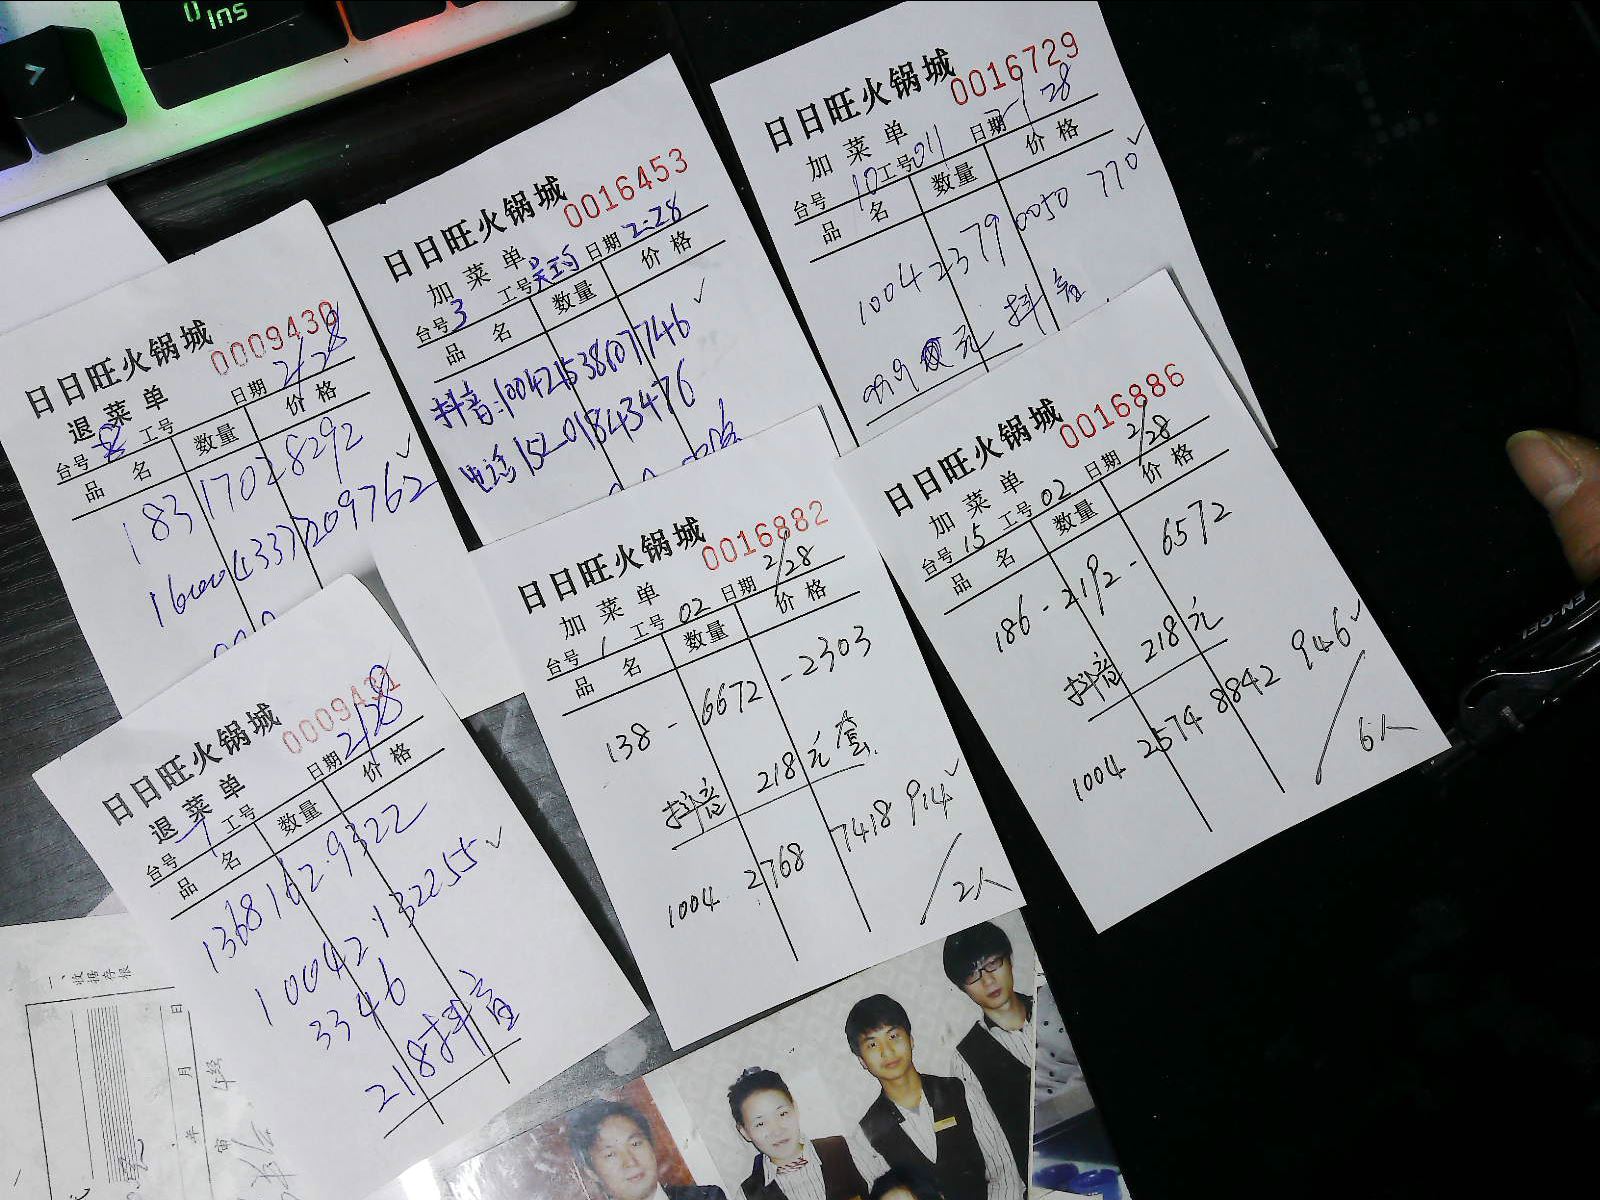 Ins
日日旺火锅城 0009430
退菜单 日期 2/28
台号 8 工号
品名 数量 价格
183 1702 8292
日日旺火锅城 0016453
加菜单
台号 3 工号 吴均 日期 2-28
品名 数量 价格
抖音:1004215386077746
电话 152-01843476
日日旺火锅城 0016729
加菜单
台号 10 工号 011 日期 2-28
品名 数量 价格
1004 2379 0050 770
99.9 元 抖音
日日旺火锅城 0009431
退菜单 日期 2/28
台号 7 工号
品名 数量 价格
1368162·9322
10042·132255
3346
218抖音
日日旺火锅城 0016882
加菜单
台号 1 工号 02 日期 2/28
品名 数量 价格
138-6672-2303
抖音 218元套
1004 2768 7418 914
2人
日日旺火锅城 0016886
加菜单
台号 15 工号 02 日期 2/28
品名 数量 价格
186-2192-6572
抖音 218元
1004 2574 8842 946
6人
一、收据存根
年 月 日